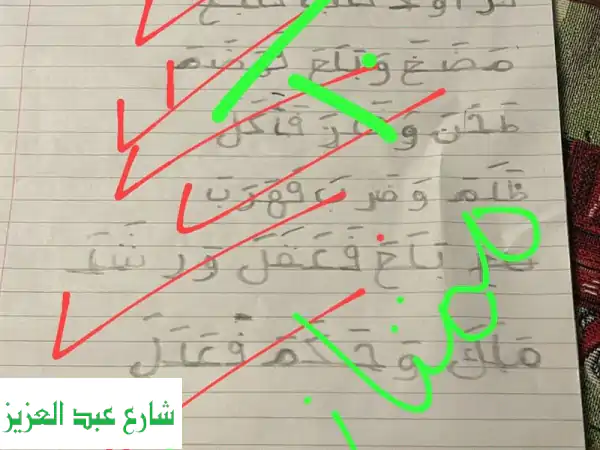 مَضَغَ وَبَلَعَ فَهَضَمَ
طَحَنَ وَ فَأَكَلَ
ظَلَمَ وَضَرَبَ فَهَرَبَ
بَاعَ فَعَقَلَ وَرَشَدَ
مَلَكَ وَحَكَمَ فَعَدَلَ
ممتاز
شارع عبد العزيز